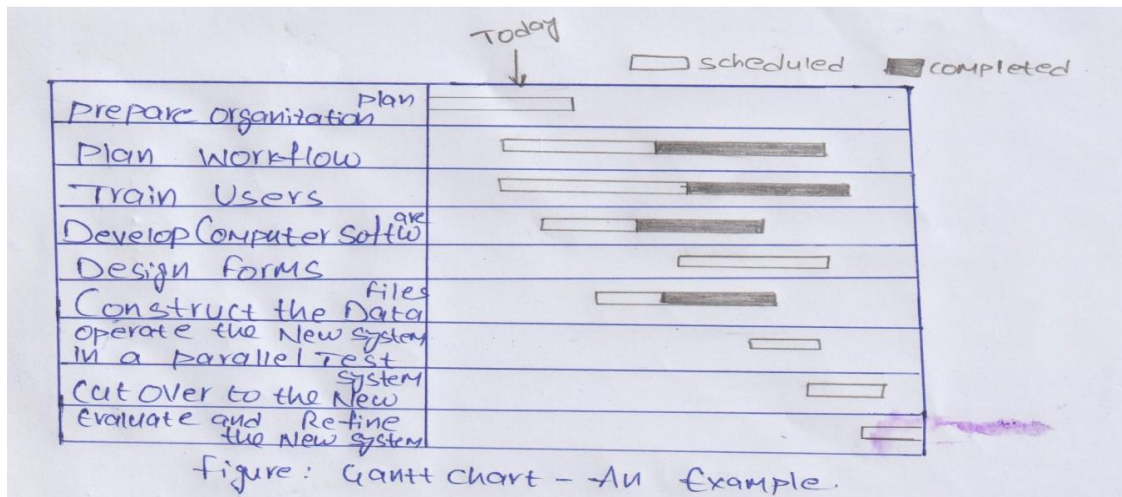 Today
scheduled completed
plan
prepare organization
Plan Workflow
Train Users
are
Develop Computer Softw
Design forms
files
Construct the Data
operate the New system
in a parallel Test
system
Cut Over to the New
Evaluate and Refine
the New system
Figure: Gantt Chart - An Example.